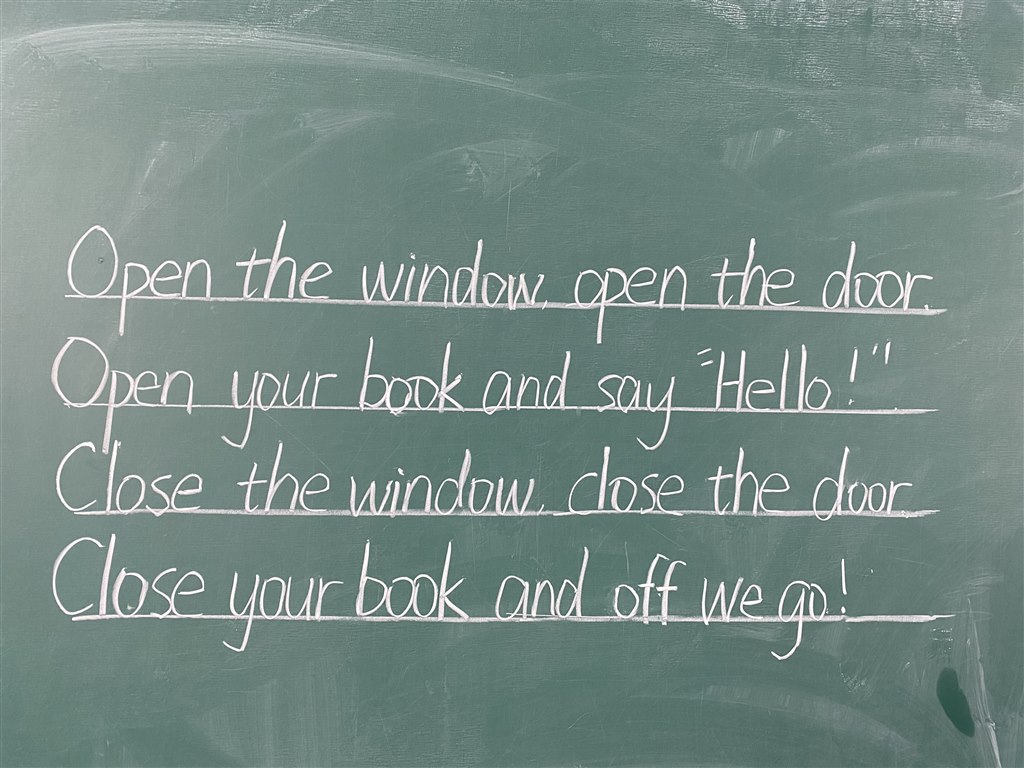 Open the window, open the door.
Open your book and say "Hello!"
Close the window, close the door
Close your book and off we go!